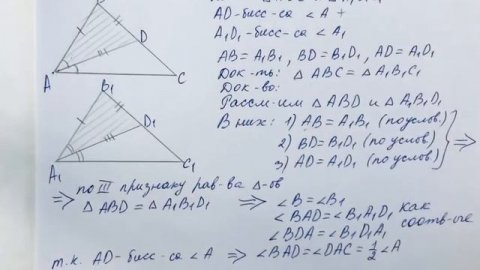 AD-бисс-са ∠A +
A₁D₁-бисс-са ∠A₁
AB=A₁B₁, BD=B₁D₁, AD=A₁D₁
Док-ть: △ABC = △A₁B₁C₁
Док-во:
Рассм-им △ABD и △A₁B₁D₁
В них: 1) AB=A₁B₁ (по услов.)
2) BD=B₁D₁ (по услов)
3) AD=A₁D₁ (по услов) ⇒
A D C
B₁
D₁
A₁ C₁
⇒ по III признаку рав-ва △-ов
△ABD=△A₁B₁D₁ ⇒ ∠B=∠B₁
∠BAD=∠B₁A₁D₁ как
∠BDA=∠B₁D₁A₁ соотв-ие
т.к. AD-бисс-са ∠A ⇒ ∠BAD=∠DAC=½∠A